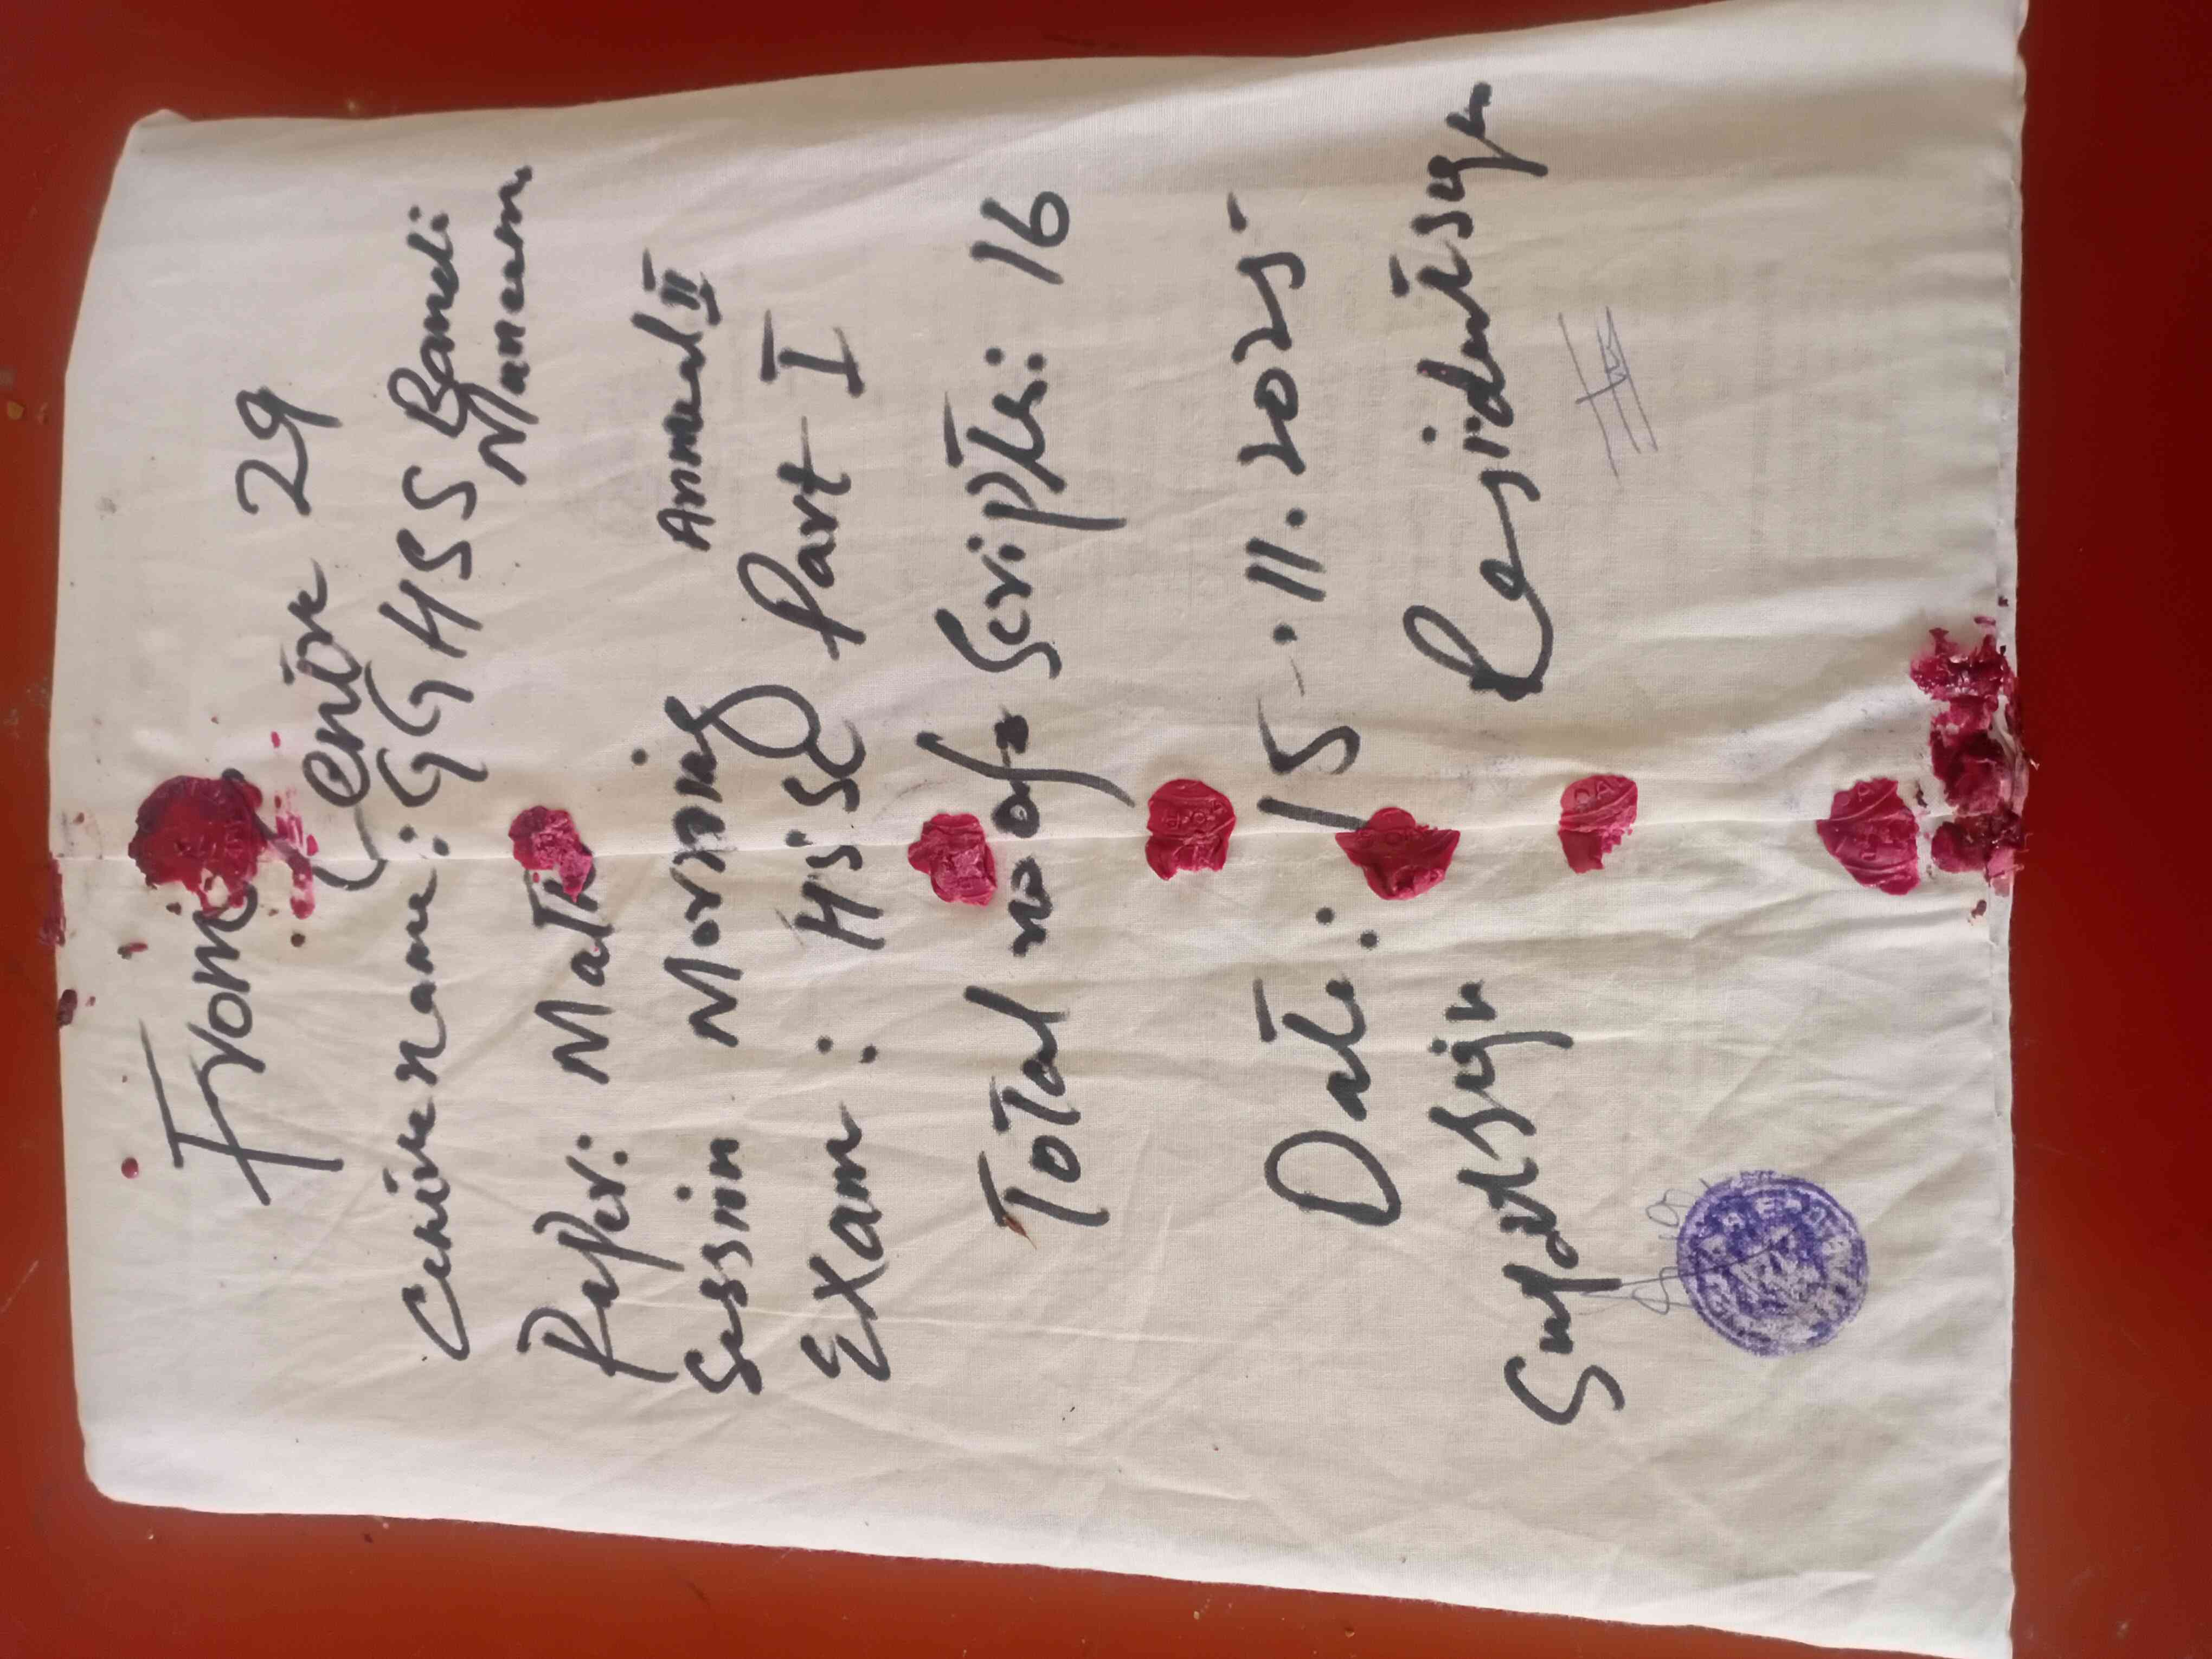 From Centre 29
Centre name: GGHSS Bandi
Naneam
Paper: Math
Session Morning Annual II
Exam: HSSC Part I
Total no of Scripts: 16
Date: 15-.11.2025
Supdt Sign Resident sign